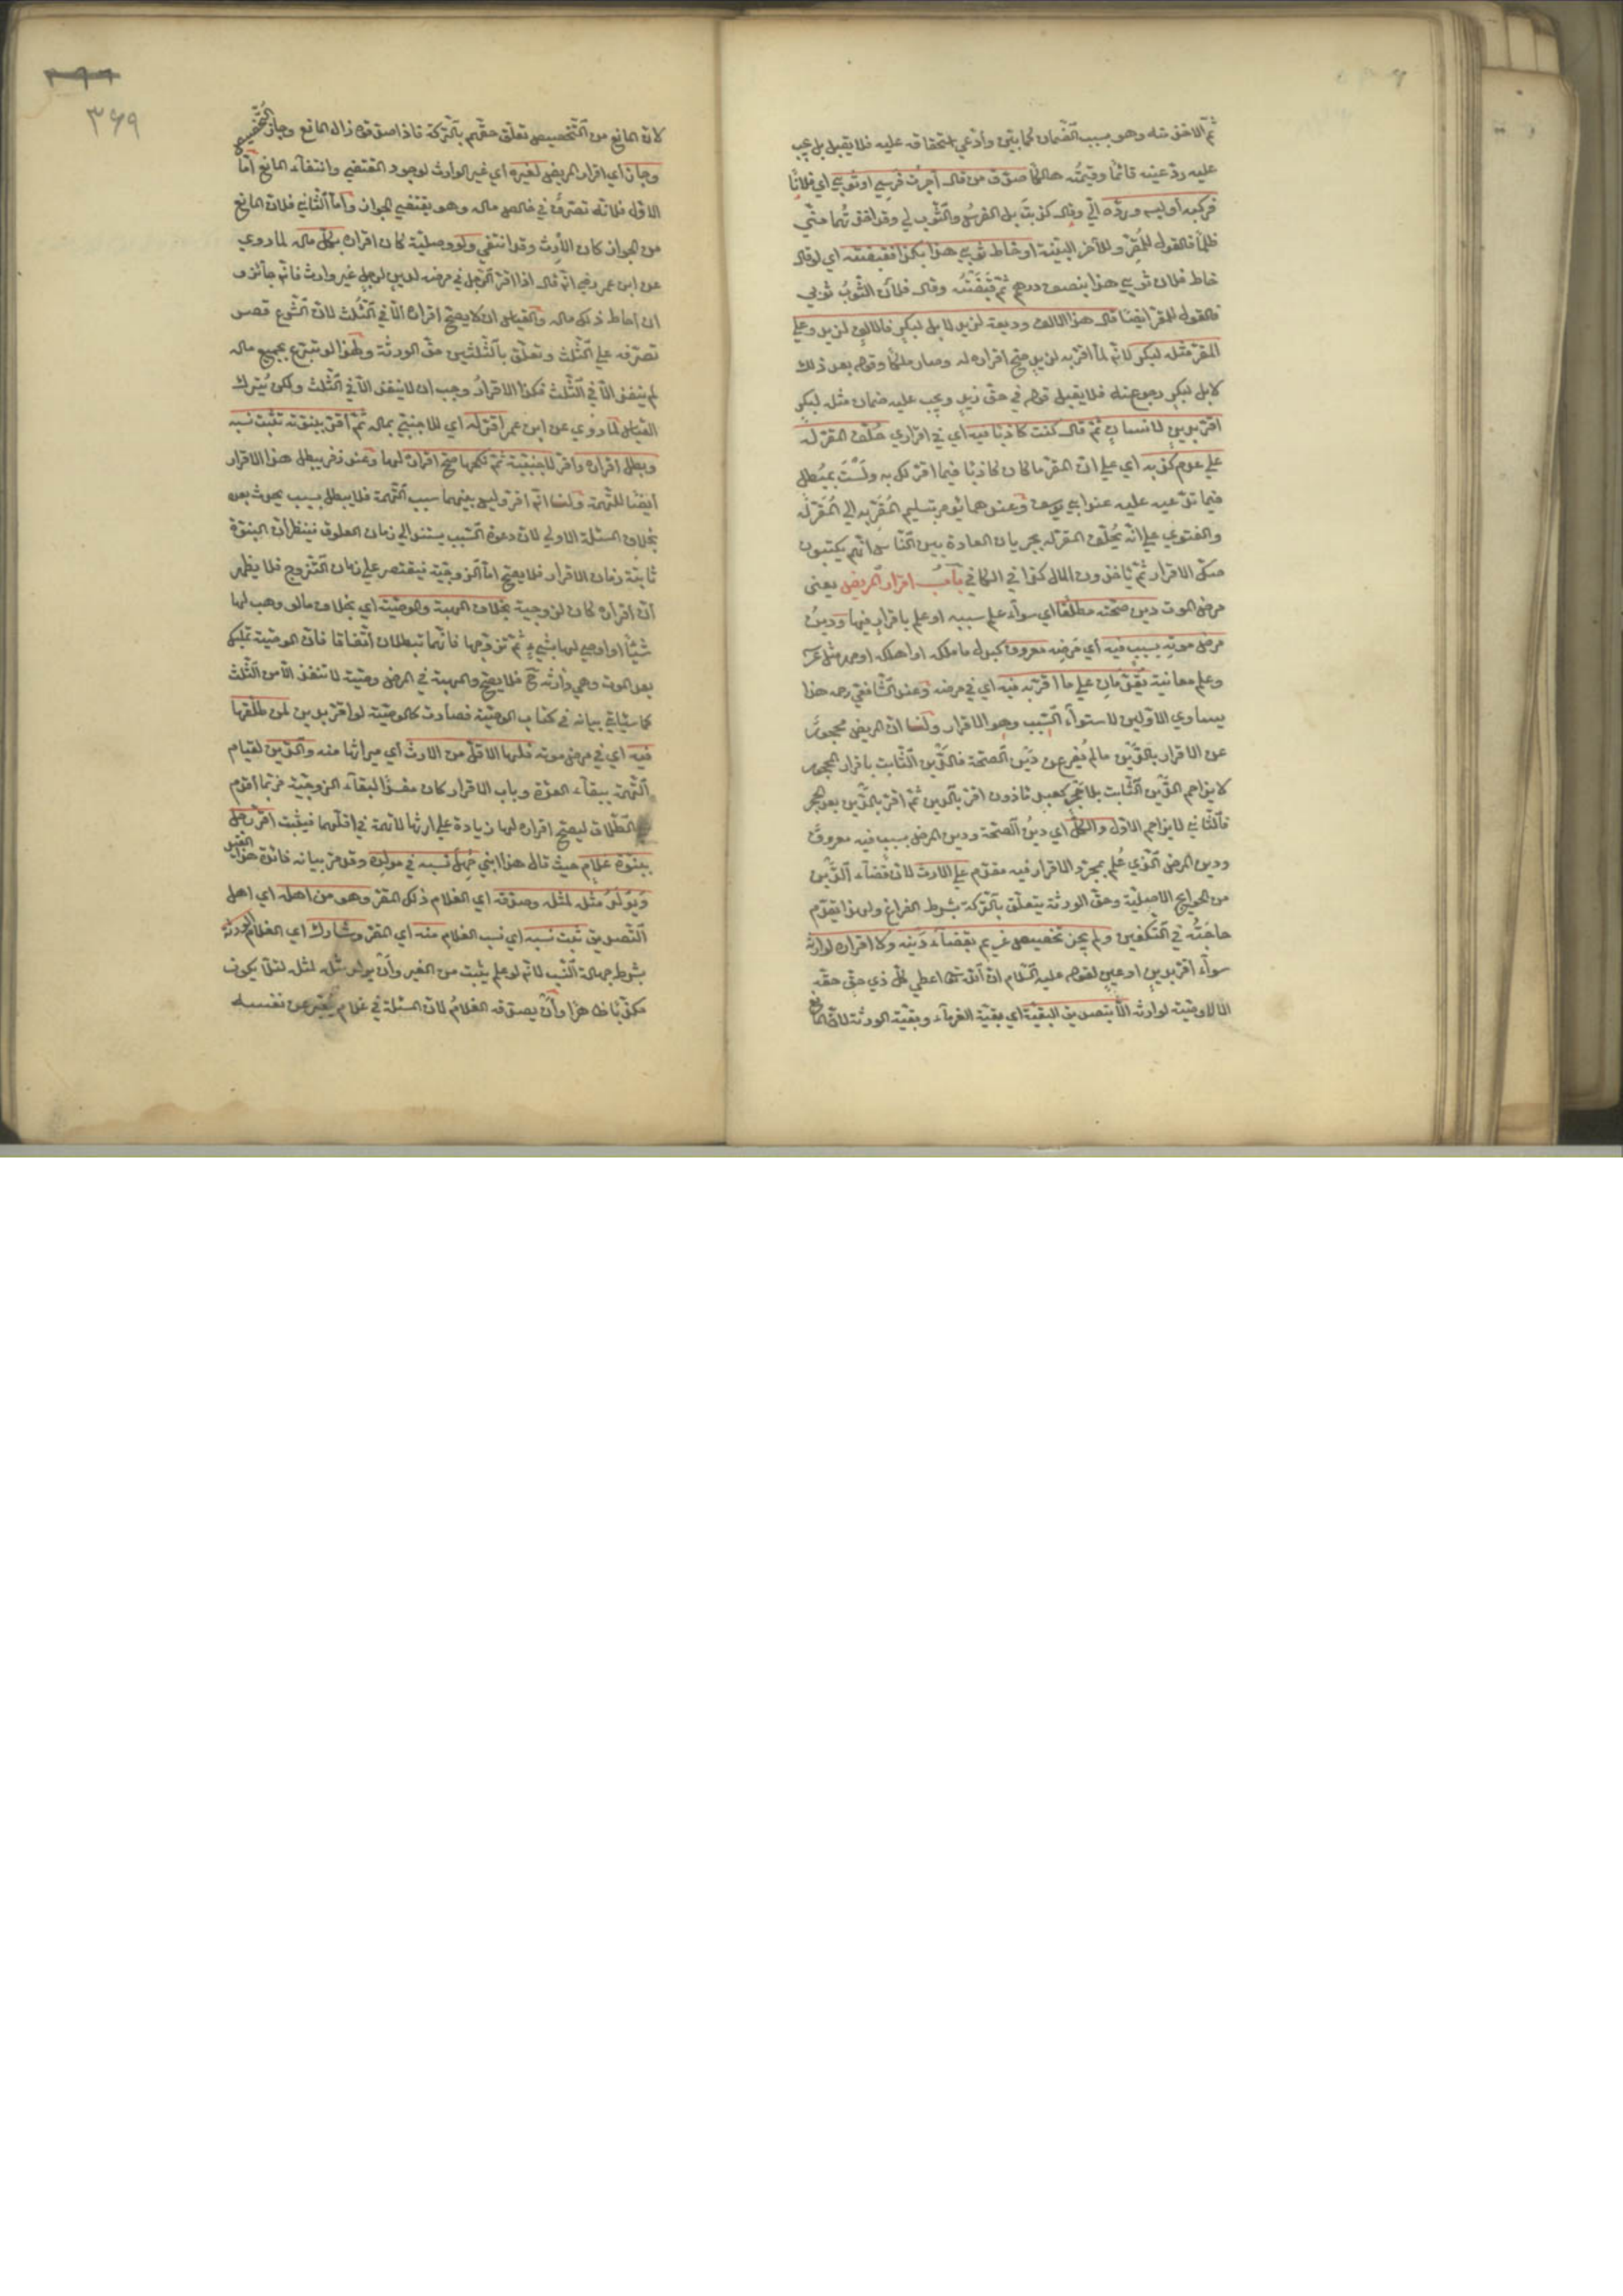 ثم الاخذ منه وهو سبب الضمان كما بين وادعي استحقاقه عليه فلا يقبل بل يجب
عليه رد عينه قائما وقيمته هالكا صدق من قال اجرت فرسي او ثوبي اي فلانا
فركبه او لبسه ورده الي وقال كذبت بل الفرس والثوب لي وقد اخذتهما مني
ظلما فالقول للمقر وللآخر البينة او خاط ثوبي هذا بكذا فقبضته اي لو قال
خاط فلان ثوبي هذا بنصف درهم ثم قبضته وقال فلان الثوب ثوبي
فالقول للمقر ايضا قال هذا الالف وديعة لزيد لا بل لبكر فالالف لزيد وعلي
المقر مثله لبكر لانه لما اقر به لزيد صح اقراره له وصار ملكا وقوله بعد ذلك
لا بل لبكر رجوع عنه فلا يقبل قوله في حق زيد ويجب عليه ضمان مثله لبكر
اقر بدين لانسان ثم قال كنت كاذبا فيه اي في اقراري حلف المقر له
علي عدم كذبه اي علي ان المقر ما كان كاذبا فيما اقر لك به ولست بمبطل
فيما تدعيه عليه عند ابي يوسف وعندهما يؤمر بتسليم المقر به الي المقر له
والفتوي علي انه يحلف المقر له بجريان العادة بين الناس انهم يكتبون
صك الاقرار ثم ياخذون المال كذا في الكافي باب اقرار المريض يعني
مرض الموت دين صحته مطلقا اي سواء علم سببه او علم باقرار فيها ودين
مرض موته بسبب فيه اي مرضه معروف كبدل ما ملكه او اهلكه او مهر مثل عرسه
وعلم معاينة يقدمان علي ما اقر به فيه اي في مرضه وعند الشافعي رحمه هذا
يساوي الاولين لاستواء السبب وهو الاقرار ولنا ان المريض محجور
عن الاقرار بالدين ما لم يفرغ عن دين الصحة فالدين الثابت باقرار المحجور
لا يزاحم الدين الثابت بلا حجر كعبد ماذون اقر بالدين ثم اقر بالدين بعد الحجر
فالثاني لا يزاحم الاول والكل اي دين الصحة ودين المرض بسبب فيه معروف
ودين المرض الذي علم بمجرد الاقرار فيه مقدم علي الارث لان قضاء الدين
من الحوايج الاصلية وحق الورثة يتعلق بالتركة بشرط الفراغ ولهذا يقدم
حاجته في التكفين ولم يجز تخصيص غريم بقضاء دينه ولا اقراره لوارثه
سواء اقر بدين او عين لقوله عليه السلام ان الله تعالي اعطي كل ذي حق حقه
الا لا وصية لوارث الا بتصديق البقية اي بقية الغرماء وبقية الورثة لان المانع
٣٦٩
لان المانع من التخصيص تعلق حقهم بالتركة فاذا صدقوه زال المانع وجاز التخصيص
وجاز اي اقرار المريض لغيره اي غير الوارث لوجود المقتضي وانتفاء المانع اما
الاول فلانه تصرف في خالص ماله وهو يقتضي الجواز واما الثاني فلان المانع
من الجواز كان الارث وقد انتفي ولو وصلية كان اقراره بكل ماله لما روي
عن ابن عمر رضي انه قال اذا اقر الرجل في مرضه بدين لرجل غير وارث فانه جائز و
ان احاط ذلك ماله والقياس ان لا يصح اقراره الا في الثلث لان الشرع قصر
تصرفه علي الثلث وتعلق بالثلثين حق الورثة ولهذا لو تبرع بجميع ماله
لم ينفذ الا في الثلث فكذا الاقرار وجب ان لا ينفذ الا في الثلث ولكن يترك
القياس لما روي عن ابن عمر اقر له اي للاجنبي بماله ثم اقر ببنوته تثبت نسبه
وبطل اقراره واقر لاجنبية ثم نكحها صح اقراره لها وعند زفر يبطل هذا الاقرار
ايضا للتهمة ولنا انه اقر وليس بينهما سبب التهمة فلا يبطل بسبب يحدث بعده
بخلاف المسئلة الاولي لان دعوة النسب يستند الي زمان العلوق فيظهر ان البنوة
ثابتة زمان الاقرار فلا يصح اما الزوجية فيقتصر علي زمان التزوج فلا يظهر
ان اقراره كان لزوجية بخلاف الهبة والوصية اي بخلاف ما لو وهب لها
شيئا او اوصي لها بشيء ثم تزوجها فانهما تبطلان اتفاقا فان الوصية تمليك
بعد الموت وهي وارثه ح فلا يصح والهبة في المرض وصية لا تنفذ الا من الثلث
كما سياتي بيانه في كتاب الوصية فصارت كالوصية لو اقر بدين لمن طلقها
فيه اي في مرض موته فلها الاقل من الارث اي ميراثها منه والدين لقيام
التهمة ببقاء العدة وباب الاقرار كان منسدا لبقاء الزوجية فربما اقدم
علي الطلاق ليصح اقراره لها زيادة علي ارثها لا تهمة في اقلهما فيثبت اقر رجل
ببنوة غلام حيث قال هذا ابني جهل نسبه في مولده وقد مر بيانه فائدة هذا القيد
ويولد مثله لمثله وصدقه اي الغلام ذلك المقر وهو من اهله اي اهل
التصديق ثبت نسبه اي نسب الغلام منه اي المقر وشارك اي الغلام الورثة
بشرط جهالة النسب لانه لو علم يثبت من الغير وان يولد مثله لمثله لئلا يكون
مكذبا ظاهرا وان يصدقه الغلام لان المسئلة في غلام يعبر عن نفسه